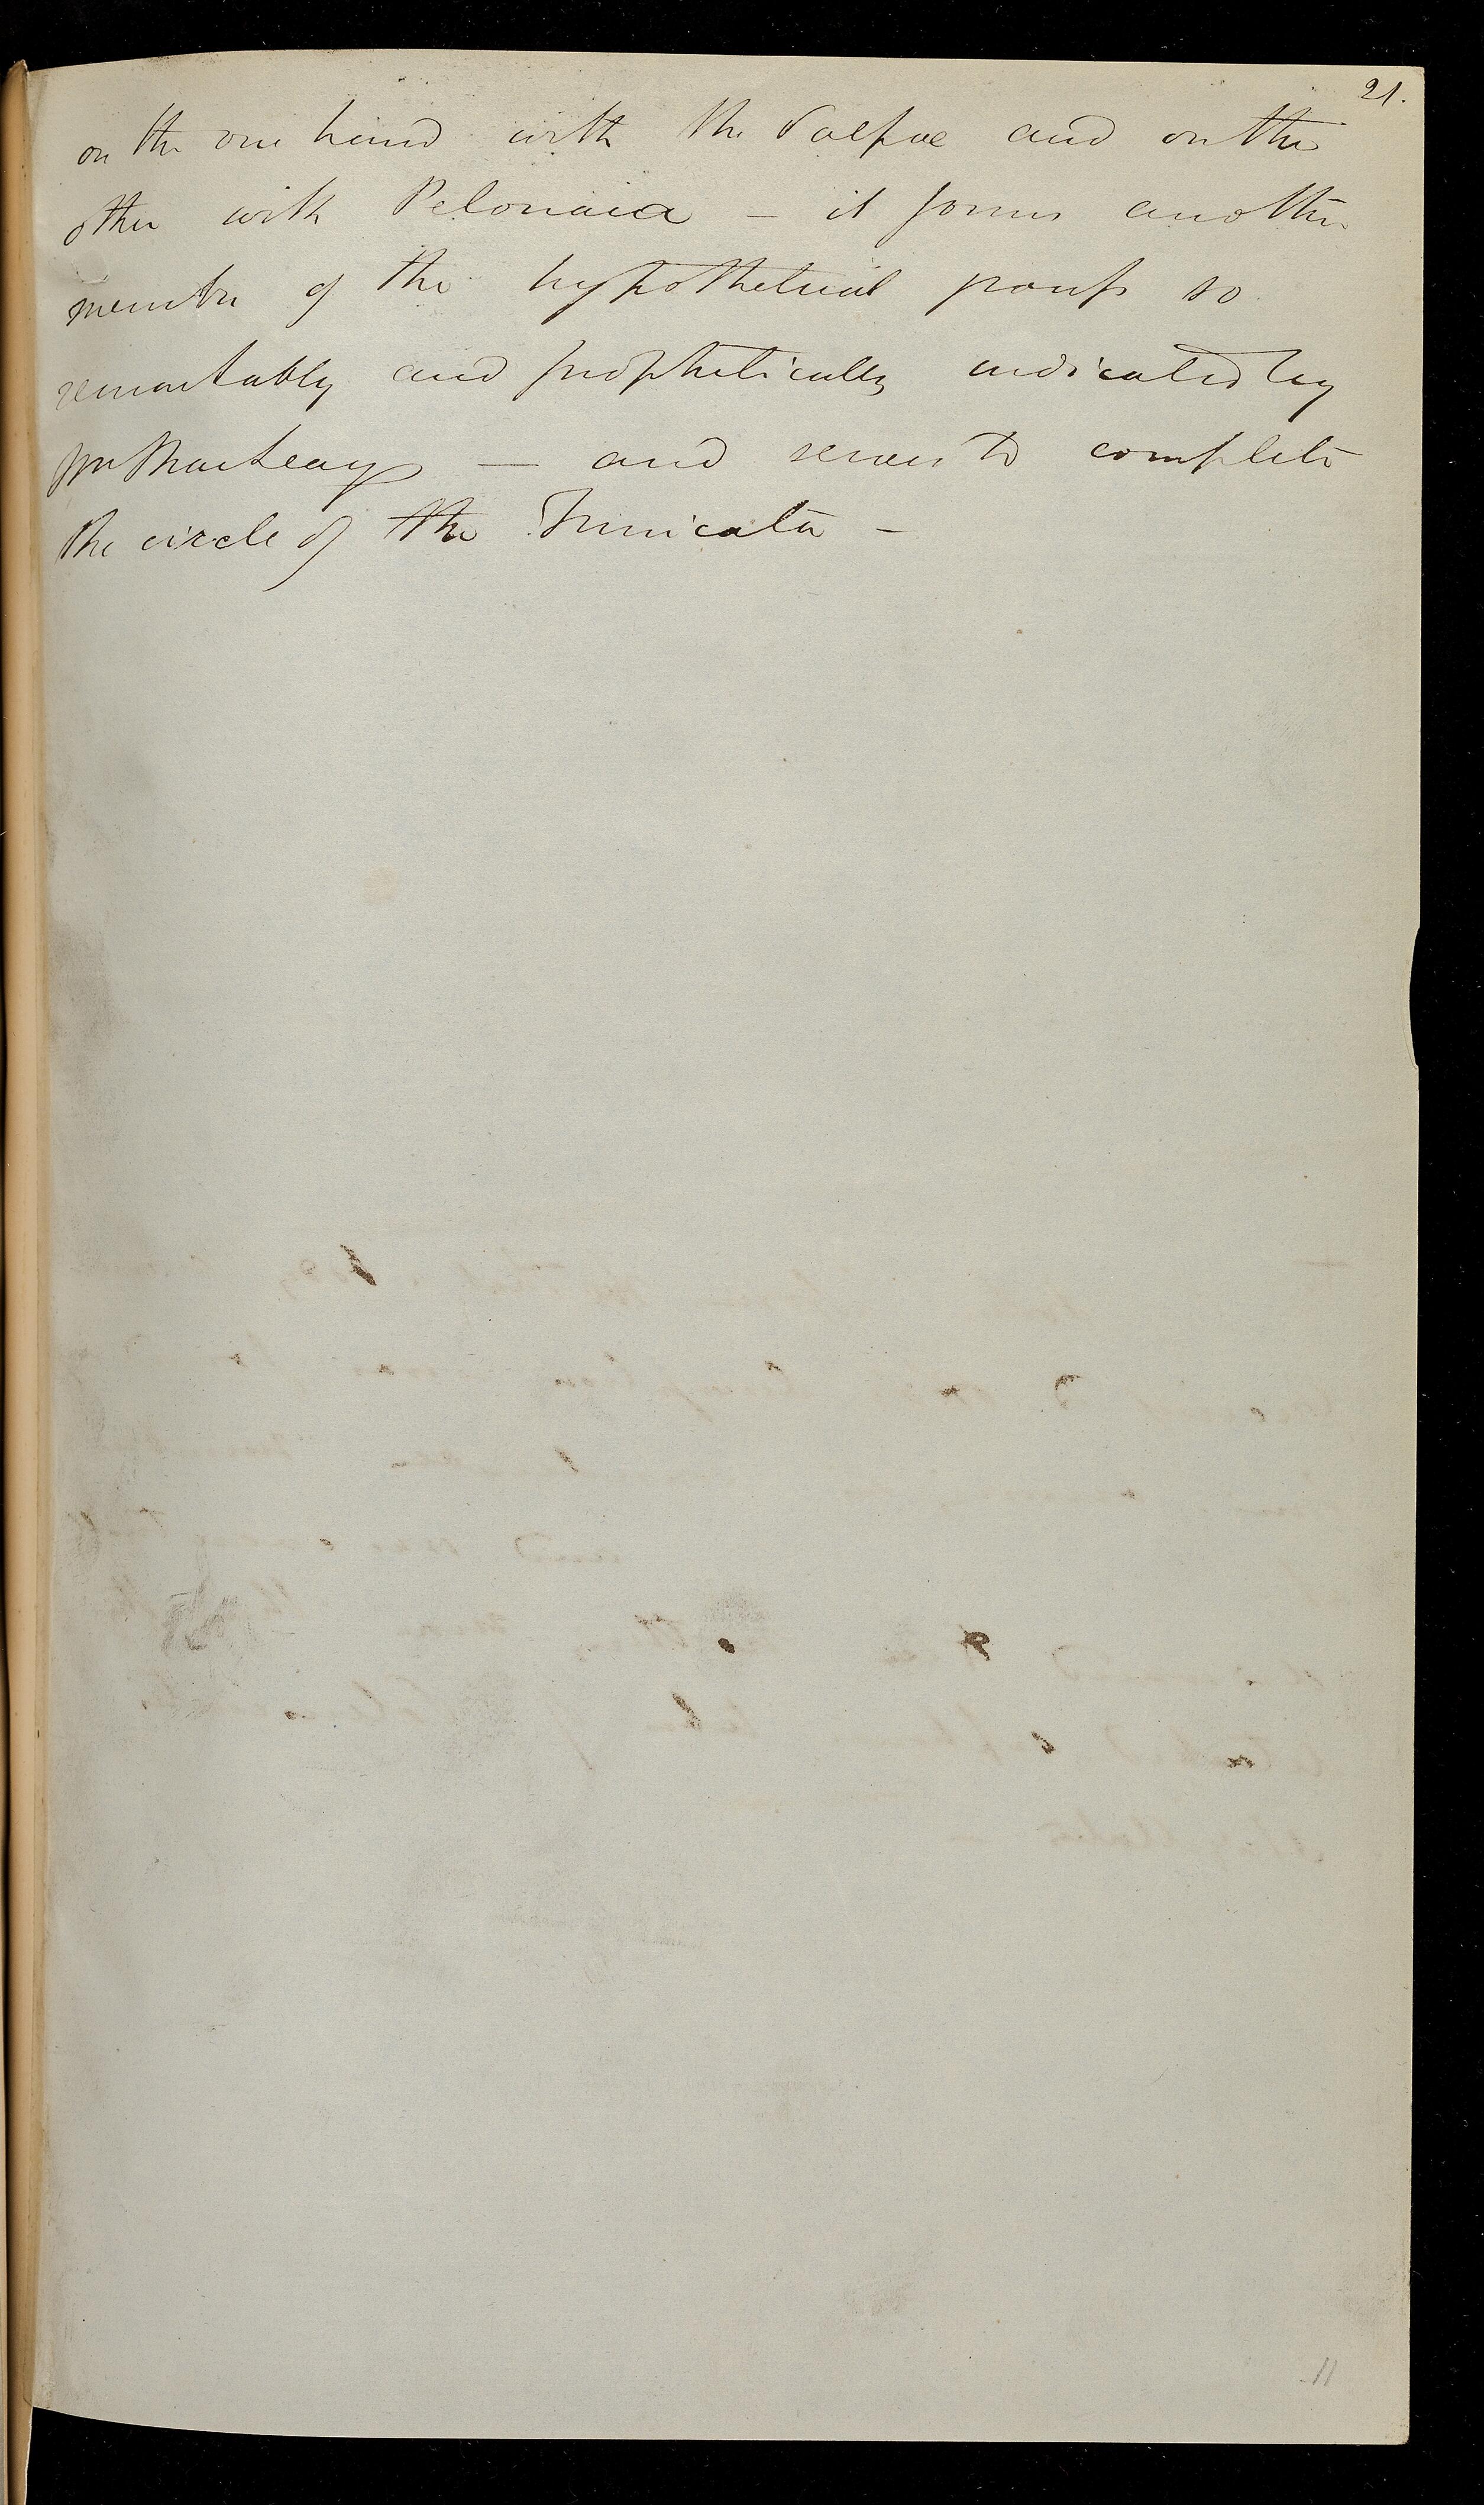 21.
on the one hand with the Salpae and on the
other with Pelonaia – it forms another
member of the hypothetical group so
remarkably and prophetically indicated by
Mr MacLeay — and serves to complete
the circle of the Tunicata –
11